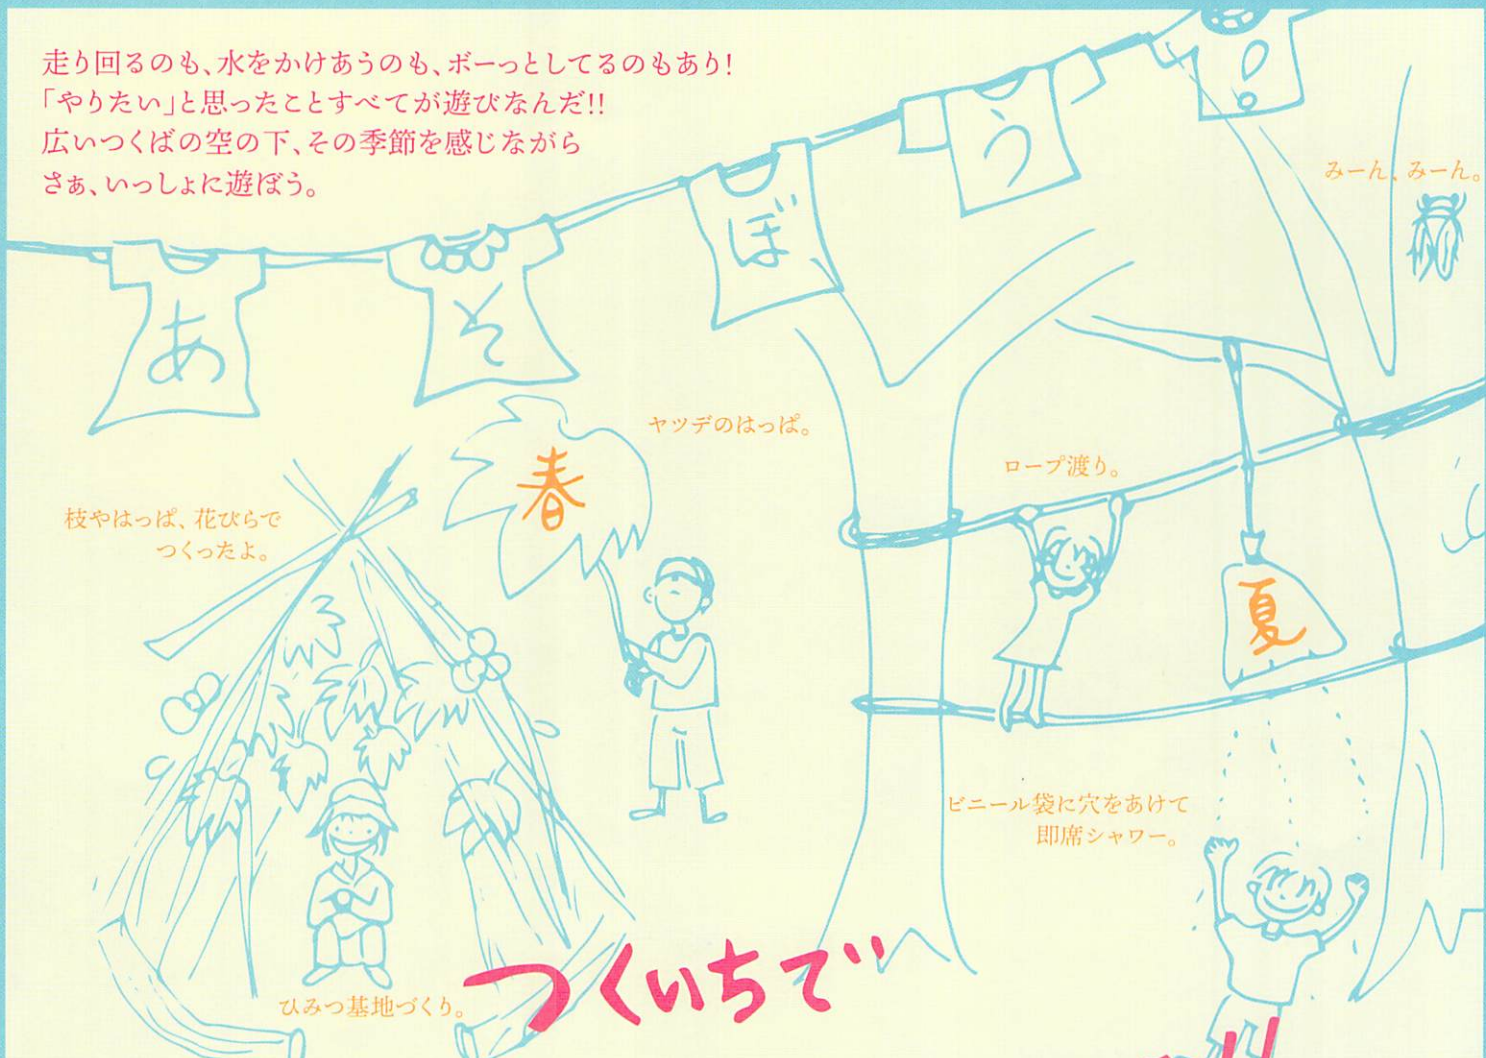 走り回るのも、水をかけあうのも、ボーっとしてるのもあり!
「やりたい」と思ったことすべてが遊びなんだ!!
広いつくばの空の下、その季節を感じながら
さぁ、いっしょに遊ぼう。
あそぼう!
みーん、みーん。
ヤツデのはっぱ。
春
ロープ渡り。
枝やはっぱ、花びらで
つくったよ。
夏
ビニール袋に穴をあけて
即席シャワー。
ひみつ基地づくり。
つくいちで